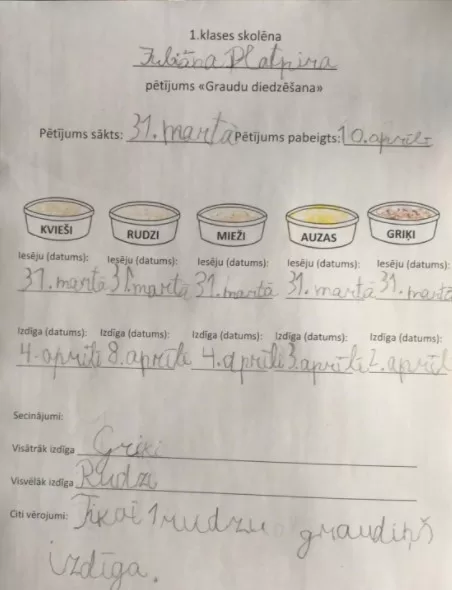 1.klases skolēna
Juliāna Platpira
pētījums «Graudu diedzēšana»
Pētījums sākts: 31. martā Pētījums pabeigts: 10. aprīlī
KVIEŠI RUDZI MIEŽI AUZAS GRIĶI
Iesēju (datums): Iesēju (datums): Iesēju (datums): Iesēju (datums): Iesēju (datums):
31. martā 31. martā 31. martā 31. martā 31. martā
Izdīga (datums): Izdīga (datums): Izdīga (datums): Izdīga (datums): Izdīga (datums):
4. aprīlī 8. aprīlī 4. aprīlī 3. aprīlī 2. aprīlī
Secinājumi:
Visātrāk izdīga Griķi
Visvēlāk izdīga Rudzi
Citi vērojumi: Tikai 1 rudzu graudiņš
izdīga.